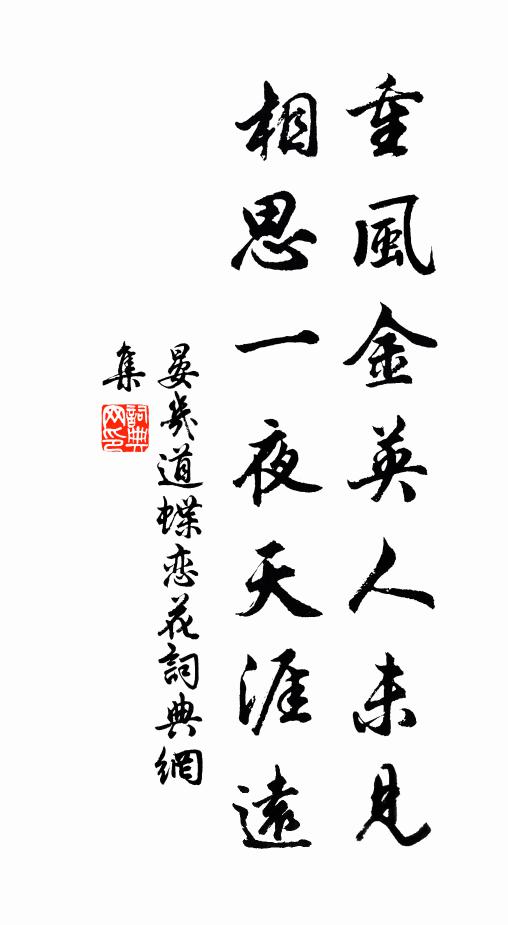 重風金英人未見
相思一夜天涯遠
晏幾道蝶恋花詞典網
集
詞典
网印